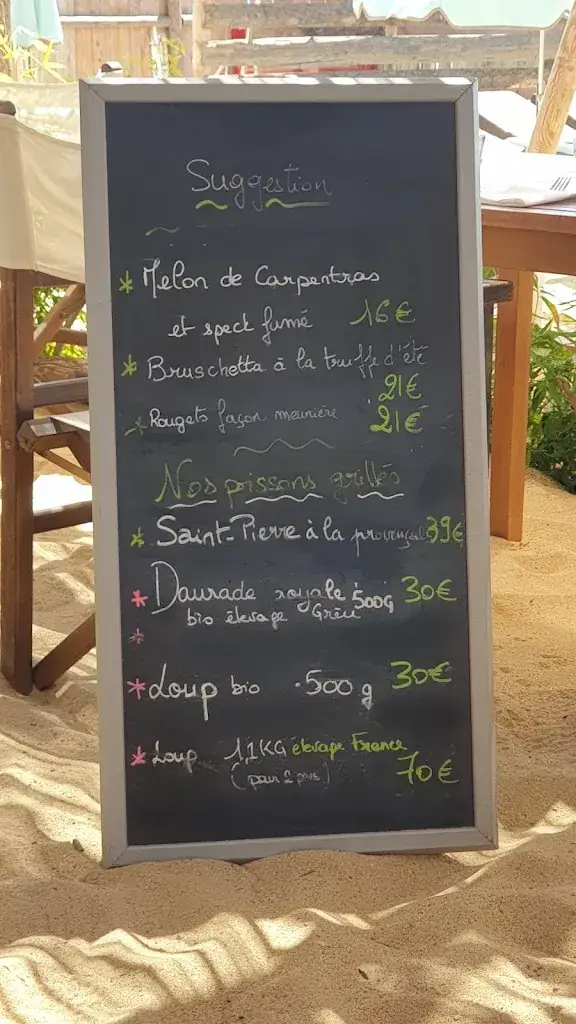 Suggestion
* Melon de Carpentras
et speck fumé 16€
* Bruschetta à la truffe d'été
21€
* Rougets façon meunière 21€
Nos poissons grillés
* Saint-Pierre à la provençale 39€
* Daurade royale 500G 30€
bio élevage Grèce
*
* Loup bio 500 g 30€
* Loup 1,1KG élevage France
(pour 2 pers) 70€